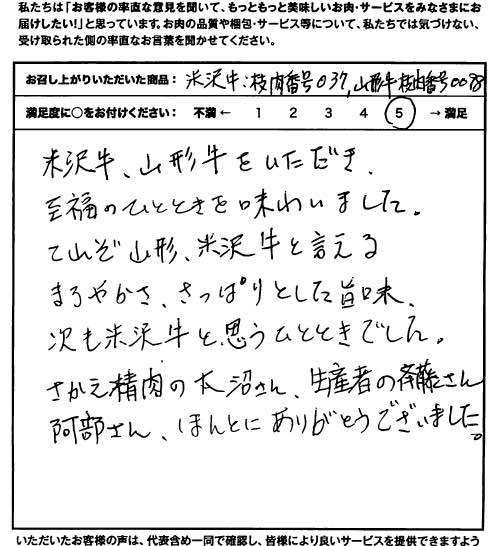 私たちは「お客様の率直な意見を聞いて、もっともっと美味しいお肉・サービスをみなさまにお
届けしたい!」と思っています。お肉の品質や梱包・サービス等について、私たちでは気づけない、
受け取られた側の率直なお言葉を聞かせてください。
お召し上がりいただいた商品: 米沢牛:枝肉番号037,山形牛枝肉番号0078
満足度に○をお付けください: 不満 ← 1 2 3 4 5 → 満足
米沢牛、山形牛をいただき、
至福のひとときを味わいました。
てぞ山形、米沢牛と言える
まろやかさ、さっぱりとした旨味、
次も米沢牛と思うひとときでした。
さかえ精肉の大沼さん、生産者の斉藤さん
阿部さん、ほんとにありがとうございました。
いただいたお客様の声は、代表含め一同で確認し、皆様により良いサービスを提供できますよう